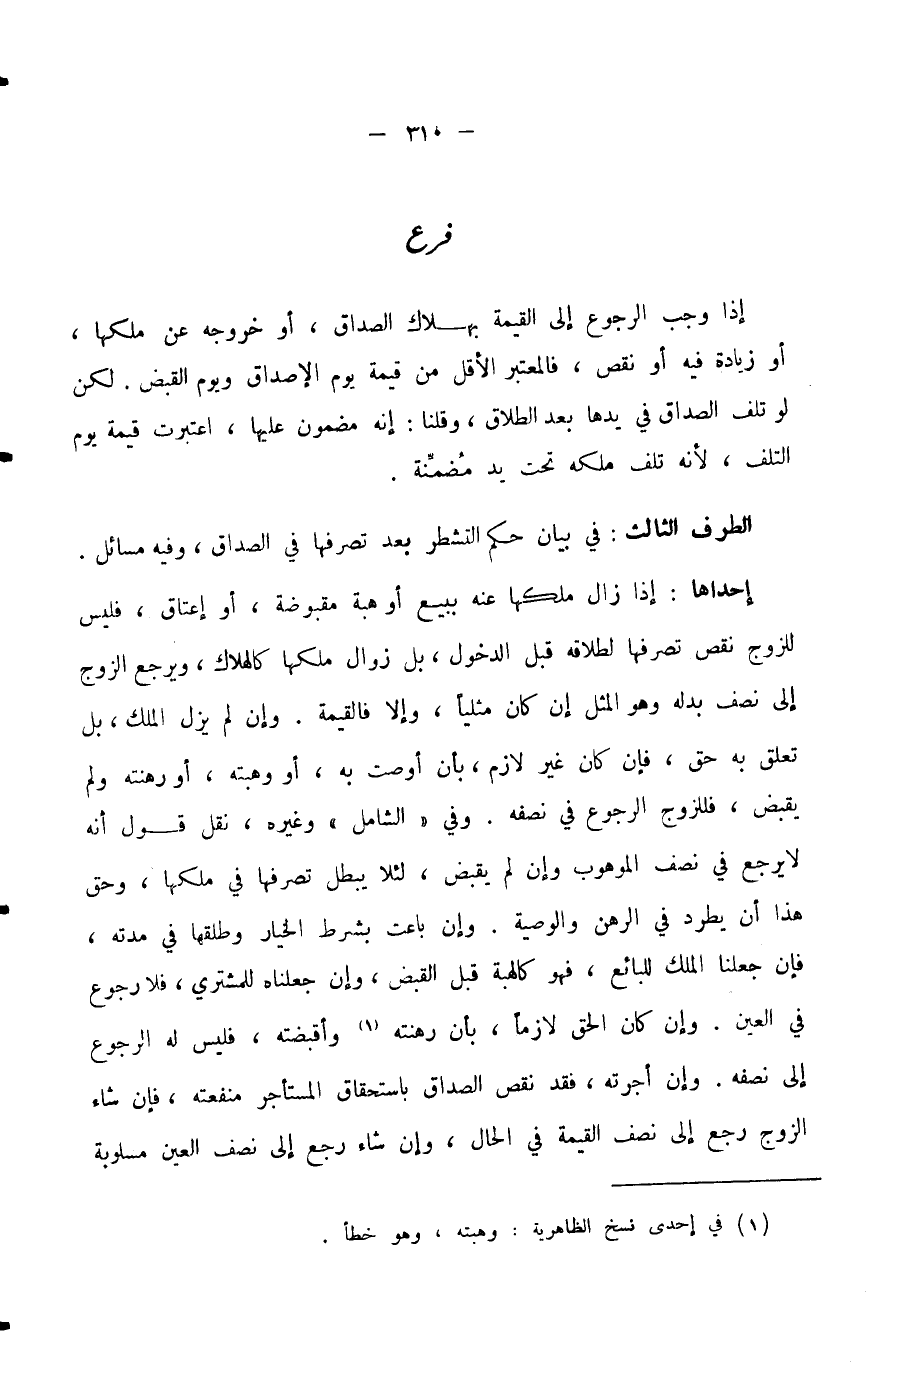 — ٣١٠ —
فرع
إذا وجب الرجوع إلى القيمة بهـلاك الصداق ، أو خروجه عن ملكها ،
أو زيادة فيه أو نقص ، فالمعتبر الأقل من قيمة يوم الإصداق ويوم القبض . لكن
لو تلف الصداق في يدها بعد الطلاق ، وقلنا : إنه مضمون عليها ، اعتبرت قيمة يوم
التلف ، لأنه تلف ملكه تحت يد مُضمِّنة .
الطرف الثالث : في بيان حكم التشطر بعد تصرفها في الصداق ، وفيه مسائل .
إحداها : إذا زال ملكها عنه ببيع أو هبة مقبوضة ، أو إعتاق ، فليس
للزوج نقص تصرفها لطلاقه قبل الدخول ، بل زوال ملكها كالهلاك ، ويرجع الزوج
إلى نصف بدله وهو المثل إن كان مثلياً ، وإلا فالقيمة . وإن لم يزل الملك ، بل
تعلق به حق ، فإن كان غير لازم ، بأن أوصت به ، أو وهبته ، أو رهنته ولم
يقبض ، فللزوج الرجوع في نصفه . وفي « الشامل » وغيره ، نقل قـول أنه
لا يرجع في نصف الموهوب وإن لم يقبض ، لئلا يبطل تصرفها في ملكها ، وحق
هذا أن يطرد في الرهن والوصية . وإن باعت بشرط الخيار وطلقها في مدته ،
فإن جعلنا الملك للبائع ، فهو كالهبة قبل القبض ، وإن جعلناه للمشتري ، فلا رجوع
في العين . وإن كان الحق لازماً ، بأن رهنته (١) وأقبضته ، فليس له الرجوع
إلى نصفه . وإن أجرته ، فقد نقص الصداق باستحقاق المستأجر منفعته ، فإن شاء
الزوج رجع إلى نصف القيمة في الحال ، وإن شاء رجع إلى نصف العين مسلوبة
(١) في إحدى نسخ الظاهرية : وهبته ، وهو خطأ .